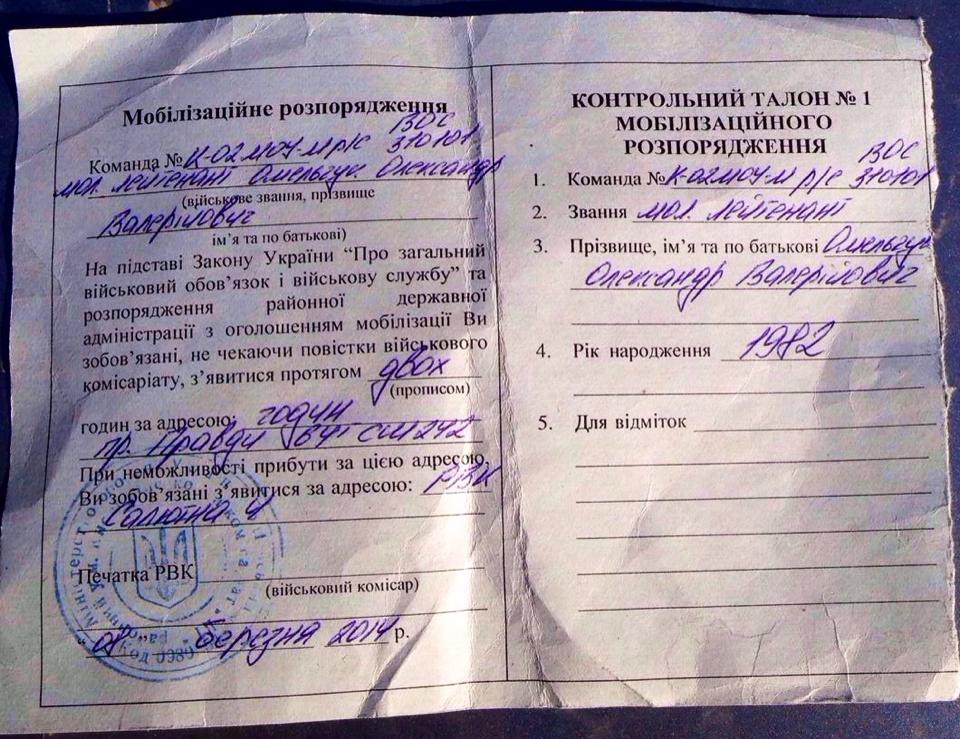 Мобілізаційне розпорядження
ВОС
Команда № К-02МОУ-М р/с 310101
мол. лейтенант Омельчук Олександр
(військове звання, прізвище
Валерійович
ім’я та по батькові)
На підставі Закону України “Про загальний
військовий обов’язок і військову службу” та
розпорядження районної державної
адміністрації з оголошенням мобілізації Ви
зобов’язані, не чекаючи повістки військового
комісаріату, з’явитися протягом двох
(прописом)
годин за адресою: годин
пр. Правди 64г
При неможливості прибути за цією адресою,
Ви зобов’язані з’явитися за адресою: РВК
Салютна
Печатка РВК
(військовий комісар)
березня 2014 р.
КОНТРОЛЬНИЙ ТАЛОН № 1
МОБІЛІЗАЦІЙНОГО
РОЗПОРЯДЖЕННЯ
ВОС
1. Команда № К-02МОУ-М р/с 310101
2. Звання мол. лейтенант
3. Прізвище, ім’я та по батькові Омельчук
Олександр Валерійович
4. Рік народження 1982
5. Для відміток